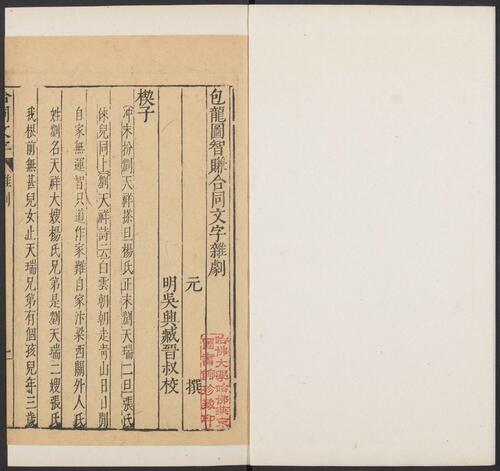 包龍圖智賺合同文字雜劇
元 撰
明吳興臧晉叔校
楔子
冲末扮劉天祥搽旦楊氏正末劉天瑞二旦張氏
俫兒同上劉天祥詩云白雲朝朝走青山日日閒
自家無運智只道作家難自家汴梁西關外人氏
姓劉名天祥大嫂楊氏兄弟是劉天瑞二嫂張氏
我根前無甚兒女止天瑞兄弟有個孩兒年三歲
合同文字 雜劇 一
哈佛大學哈佛燕京
圖書館珍藏印